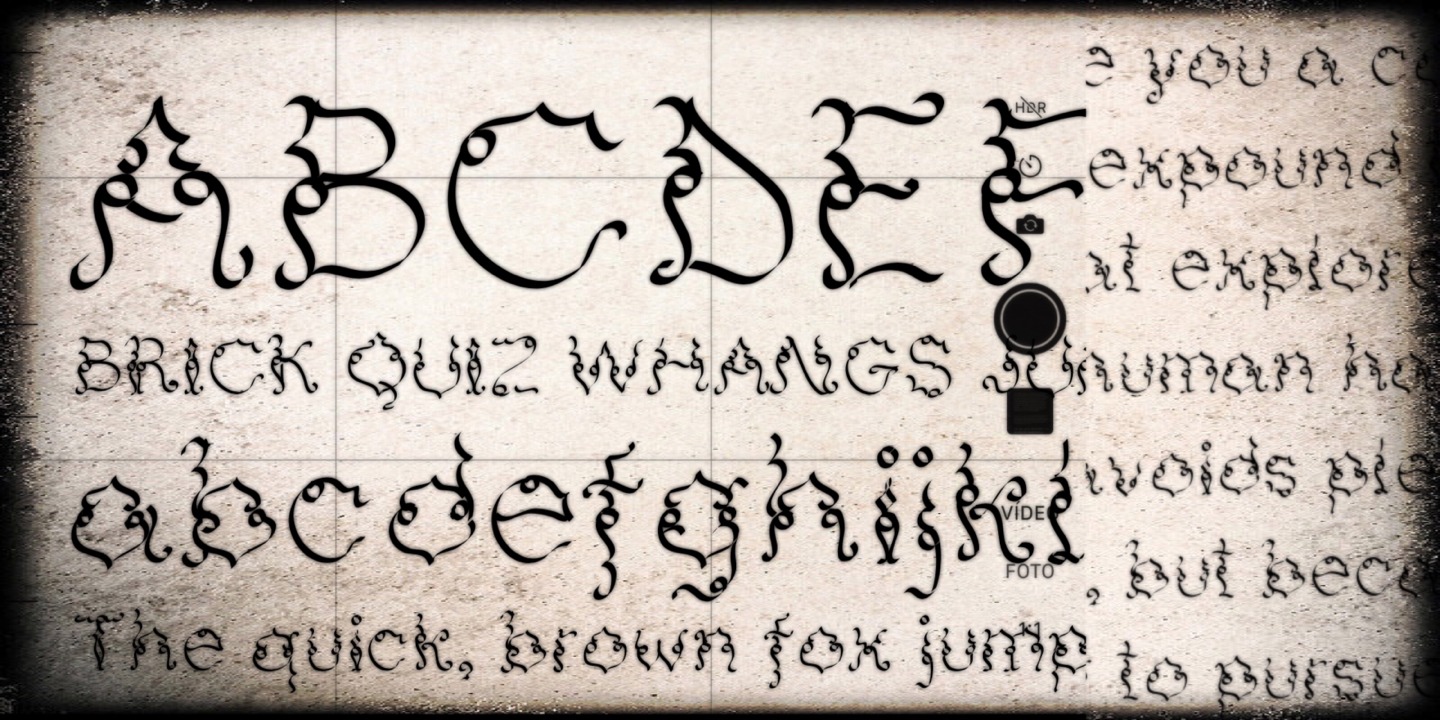 ABCDEF
BRICK QUIZ WHANGS JU
abcdefghijkl
The quick, brown fox jump
HDR
VIDE
FOTO
you a
expound
explor
human
pl
but
to pursue